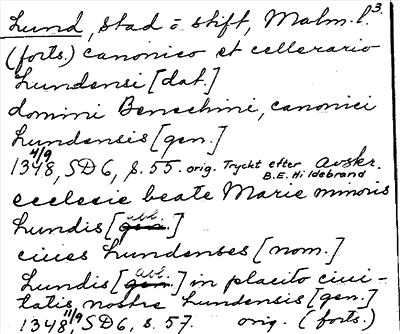 Lund, stad = stift, Malm. l. 3.
(forts.) canonico et cellerario
Lundensi [dat.]
domini Benechini, canonici
Lundensis [gen.]
4/9
1348, SD6, s. 55. orig. Tryckt efter avskr.
B.E. Hildebrand
ecclesie beate Marie minoris
abl.
Lundis [gen.]
ciues Lundenses [nom.]
abl.
Lundis [gen.] in placito ciui-
tatis nostre Lundensis [gen.]
11/9
1348, SD6, s. 57. orig. (forts.)